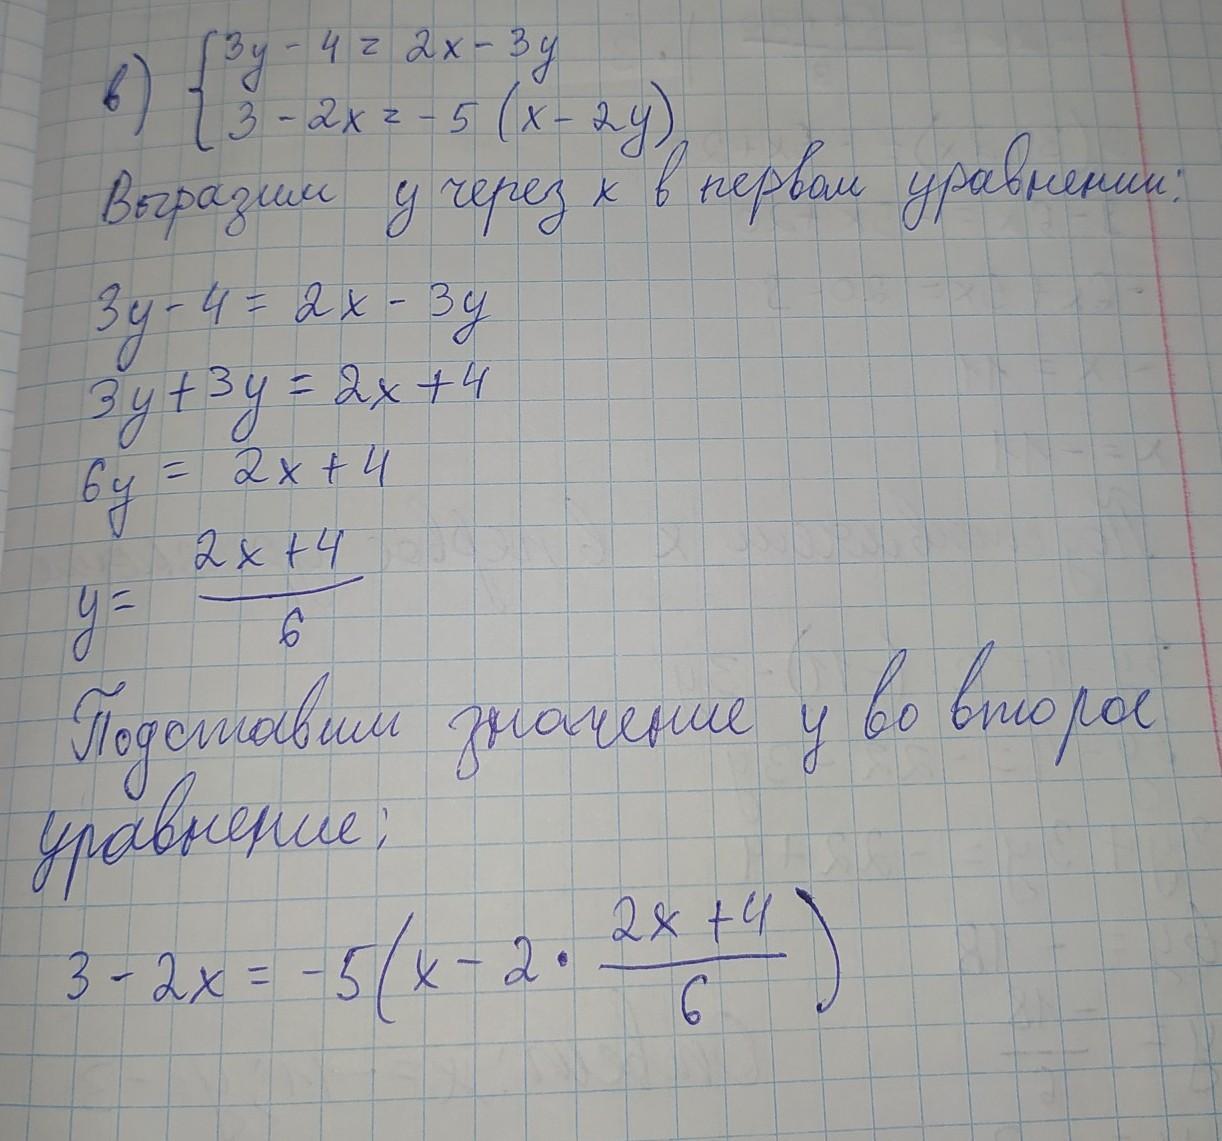 в) {3y - 4 = 2x - 3y
3 - 2x = -5 (x - 2y)
Выразим y через x в первом уравнении:
3y - 4 = 2x - 3y
3y + 3y = 2x + 4
6y = 2x + 4
y = \frac{2x + 4}{6}
Подставим значение y во второе
уравнение:
3 - 2x = -5(x - 2 · \frac{2x + 4}{6})